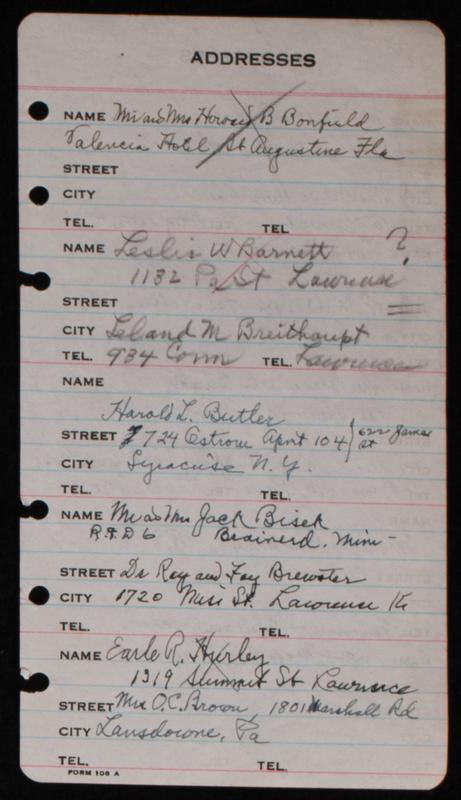 ADDRESSES
NAME Mr and Mrs Howard B Bonfield
Valencia Hotel St Augustine Fla
STREET
CITY
TEL. TEL
NAME Leslie W Barnett ?
1132 Pa St Lawrence
STREET
CITY Leland M Breithaupt
TEL. 934 Conn TEL. Lawrence
NAME
Harold L. Butler
STREET 724 Ostrom Aprt 104 622 James St
CITY Syracuse N. Y.
TEL. TEL.
NAME Mr and Mrs Jack Bisek
R.F.D 6 Brainerd. Minn
STREET Dr Ray and Fay Brewster
CITY 1720 Miss St. Lawrence Ks
TEL. TEL.
NAME Earle R. Hurley
1319 Summit St Lawrence
STREET Mrs O.C. Brown, 1801 Marshall Rd
CITY Lansdowne, Pa
TEL. TEL.
FORM 106 A